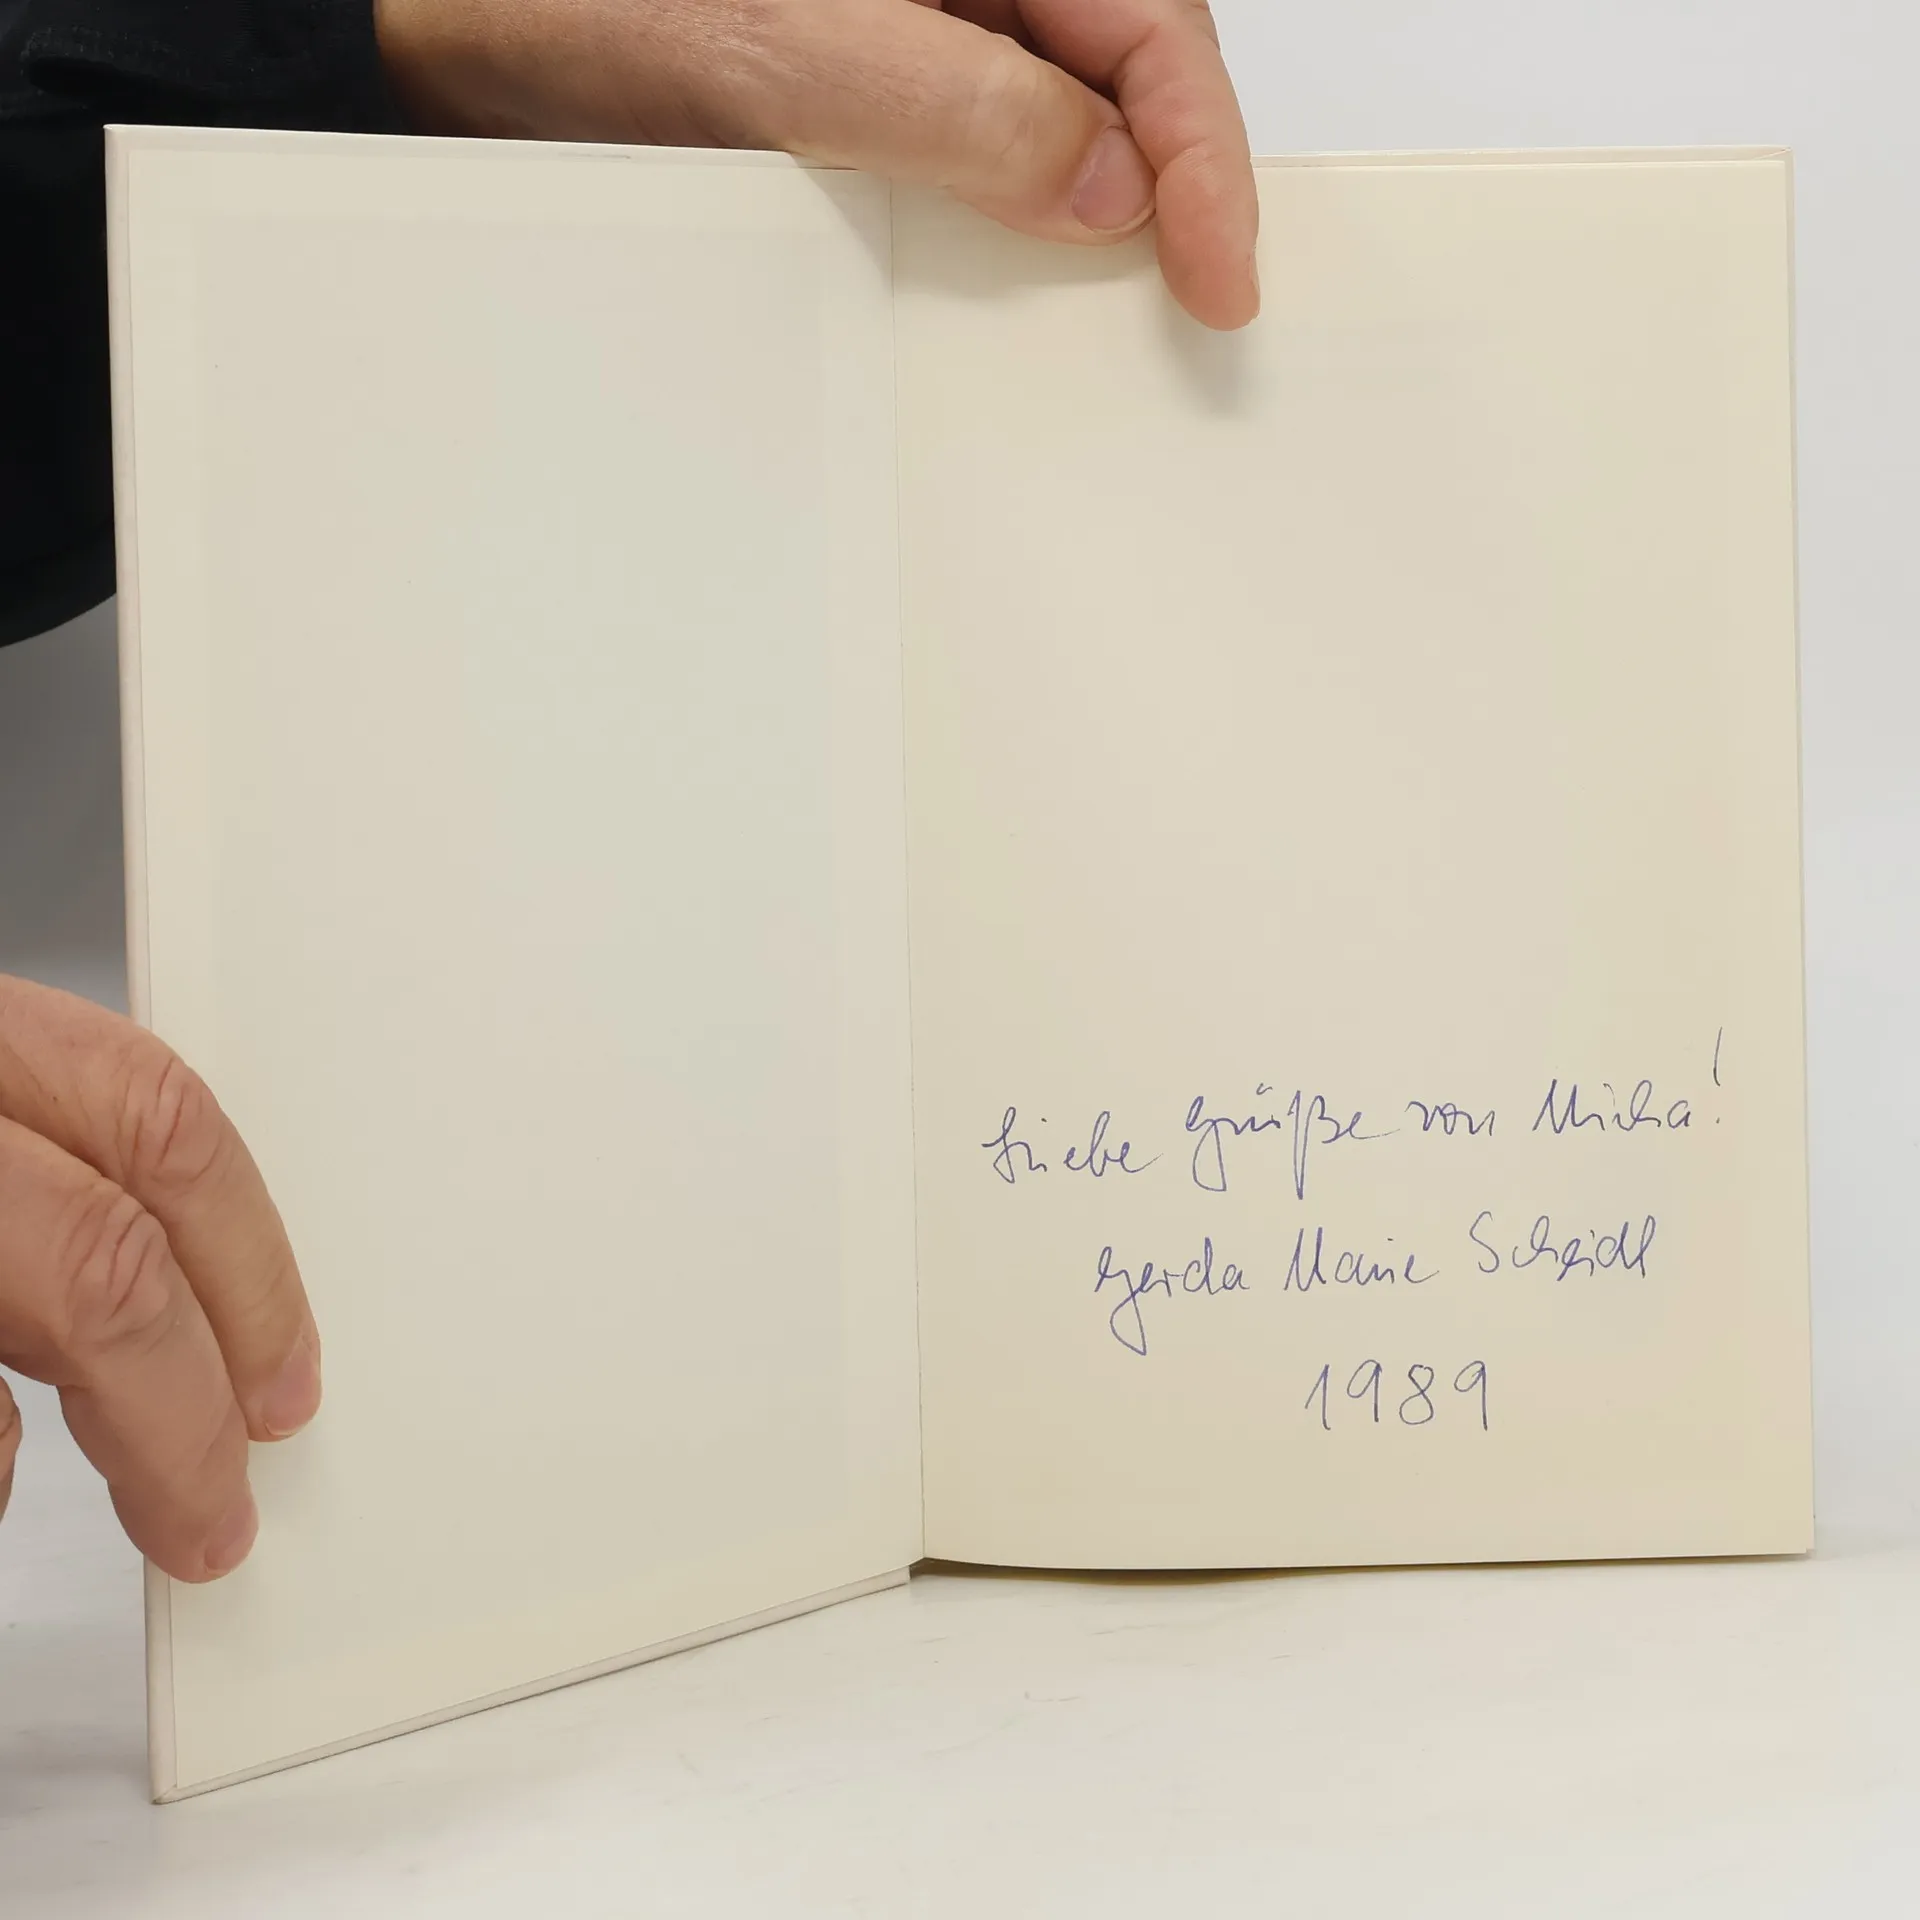 Liebe Grüße von Micha!
Gerda Marie Scheidl
1989